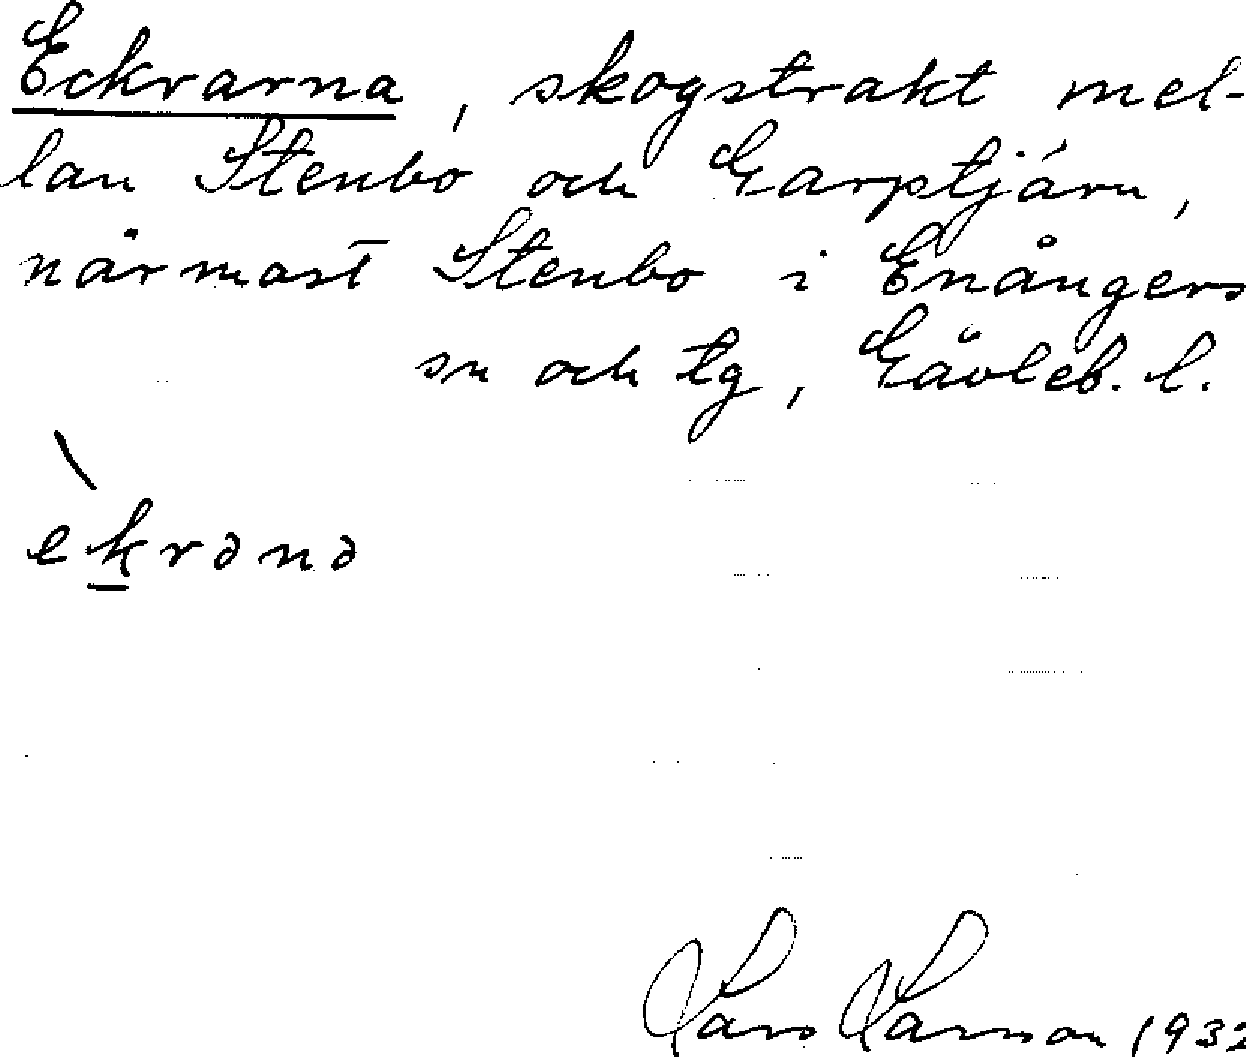 Eckrarna, skogstrakt mel-
lan Stenbo och Garptjärn,
närmast Stenbo i Enångers
sn och tg, Gävleb. l.
èk̲rənə
Lars Larson 1932